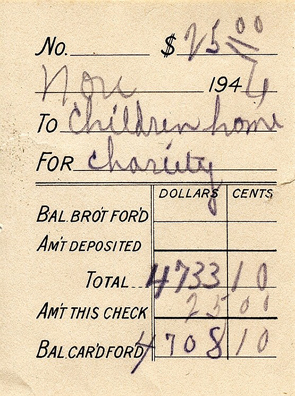 No. $25 00
Nov 1944
To Children home
For chariety
DOLLARS CENTS
BAL. BRO'T FOR'D
AM'T DEPOSITED
TOTAL 4733 10
AM'T THIS CHECK 25 00
BAL. CAR'D FOR'D 4708 10